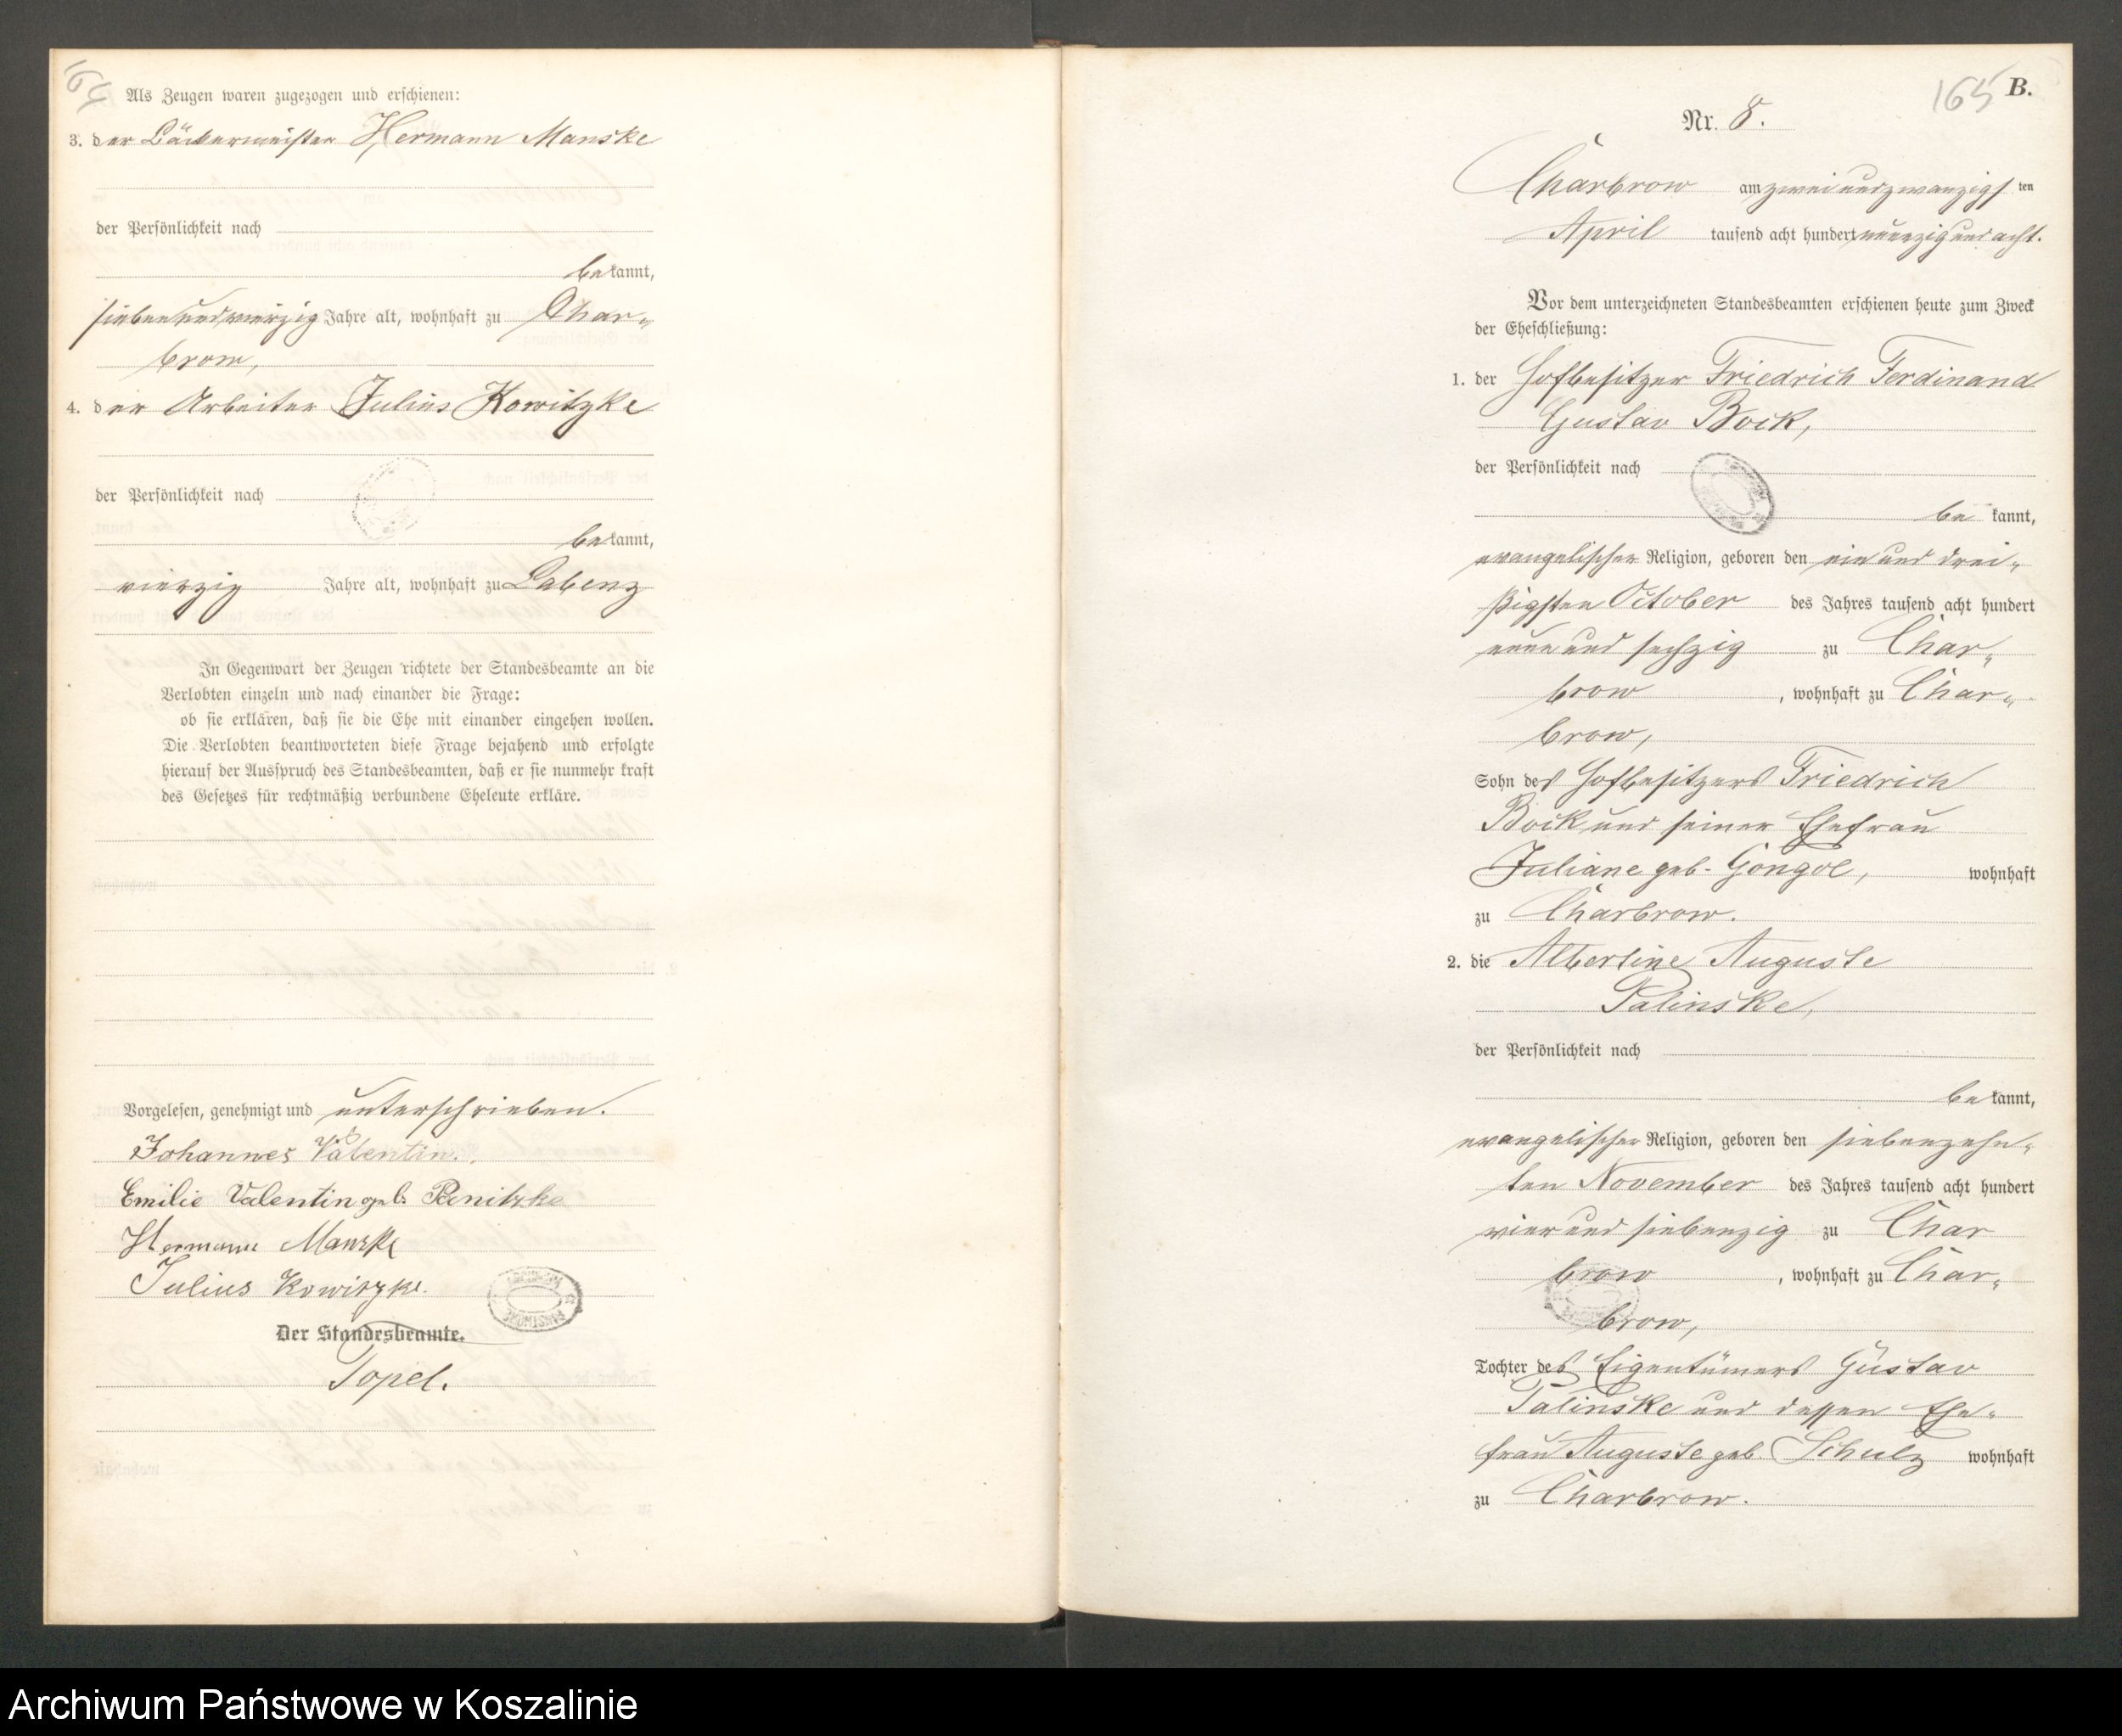 164
Als Zeugen waren zugezogen und erschienen:
3. der Bäckermeister Hermann Manske
der Persönlichkeit nach
bekannt,
siebenundvierzig Jahre alt, wohnhaft zu Char-
brow,
4. der Arbeiter Julius Kowitzke
der Persönlichkeit nach
bekannt,
vierzig Jahre alt, wohnhaft zu Labenz
In Gegenwart der Zeugen richtete der Standesbeamte an die
Verlobten einzeln und nach einander die Frage:
ob sie erklären, daß sie die Ehe mit einander eingehen wollen.
Die Verlobten beantworteten diese Frage bejahend und erfolgte
hierauf der Ausspruch des Standesbeamten, daß er sie nunmehr kraft
des Gesetzes für rechtmäßig verbundene Eheleute erkläre.
Vorgelesen, genehmigt und unterschrieben.
Johannes Valentin.
Emilie Valentin geb. Panitzke
Hermann Manske
Julius Kowitzke.
Der Standesbeamte.
Topel.
165 B.
Nr. 8.
Charbrow am zweiundzwanzigsten
April tausend acht hundert neunzig und acht.
Vor dem unterzeichneten Standesbeamten erschienen heute zum Zweck
der Eheschließung:
1. der Hofbesitzer Friedrich Ferdinand
Gustav Bock,
der Persönlichkeit nach
bekannt,
evangelischer Religion, geboren den ein und drei-
ßigsten October des Jahres tausend acht hundert
neun und sechzig zu Char-
brow, wohnhaft zu Char-
brow,
Sohn des Hofbesitzers Friedrich
Bock und seiner Ehefrau
Juliane geb. Gongol, wohnhaft
zu Charbrow.
2. die Albertine Auguste
Palinske,
der Persönlichkeit nach
bekannt,
evangelischer Religion, geboren den siebenzehn-
ten November des Jahres tausend acht hundert
vier und siebenzig zu Char
brow, wohnhaft zu Char-
brow,
Tochter des Eigentümers Gustav
Palinske und dessen Ehe-
frau Auguste geb. Schulz wohnhaft
zu Charbrow.
Archiwum Państwowe w Koszalinie